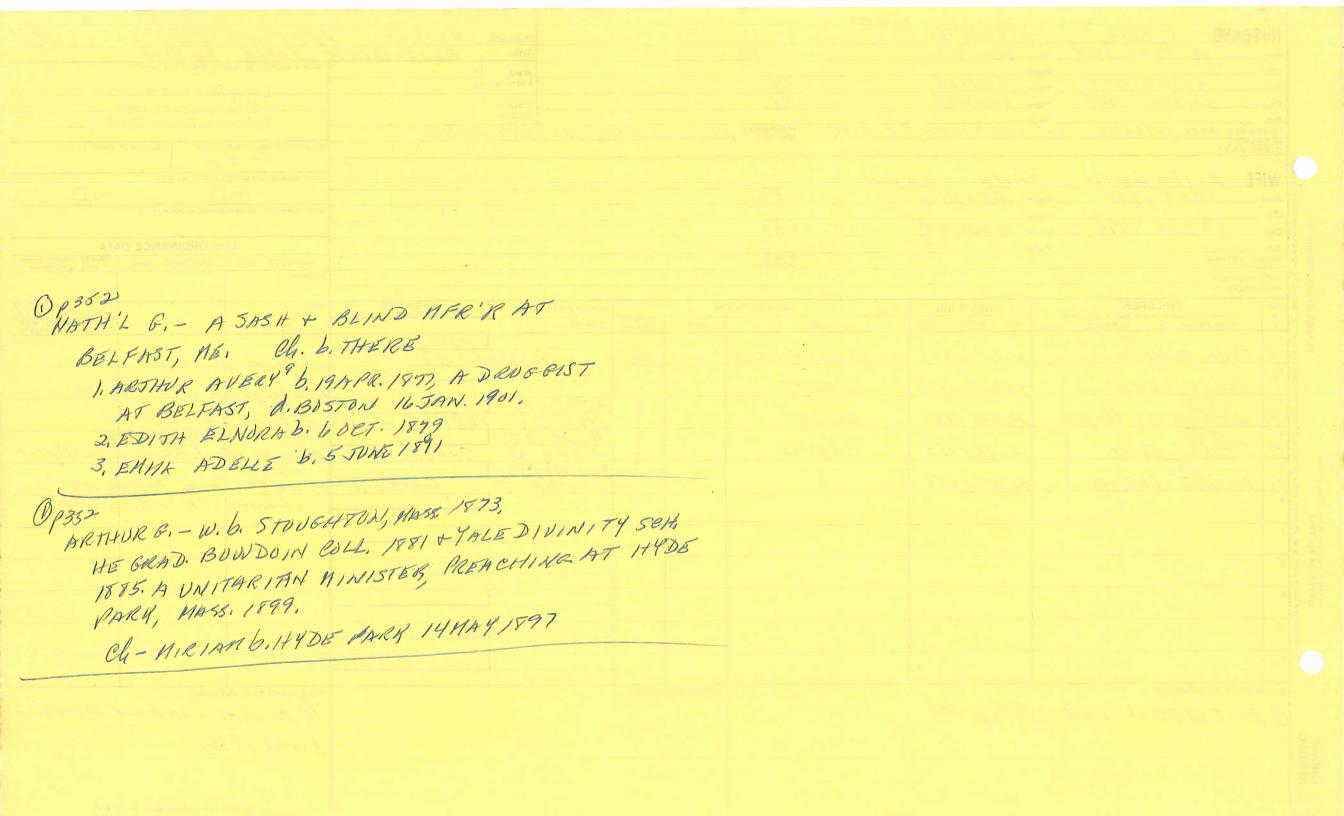 ① p352
NATH'L G. – A SASH + BLIND MFR'R AT
BELFAST, ME. Ch. b. THERE
1. ARTHUR AVERY⁹ b. 19 APR. 1877, A DRUGGIST
AT BELFAST, d. BOSTON 16 JAN. 1901.
2. EDITH ELNORA b. 6 OCT. 1879
3. EMMA ADELLE b. 5 JUNE 1891
① p352
ARTHUR G. – W. b. STOUGHTON, MASS 1873.
HE GRAD. BOWDOIN COLL. 1881 + YALE DIVINITY SCH.
1885. A UNITARIAN MINISTER, PREACHING AT HYDE
PARK, MASS. 1899.
Ch – MIRIAM b. HYDE PARK 14 MAY 1897